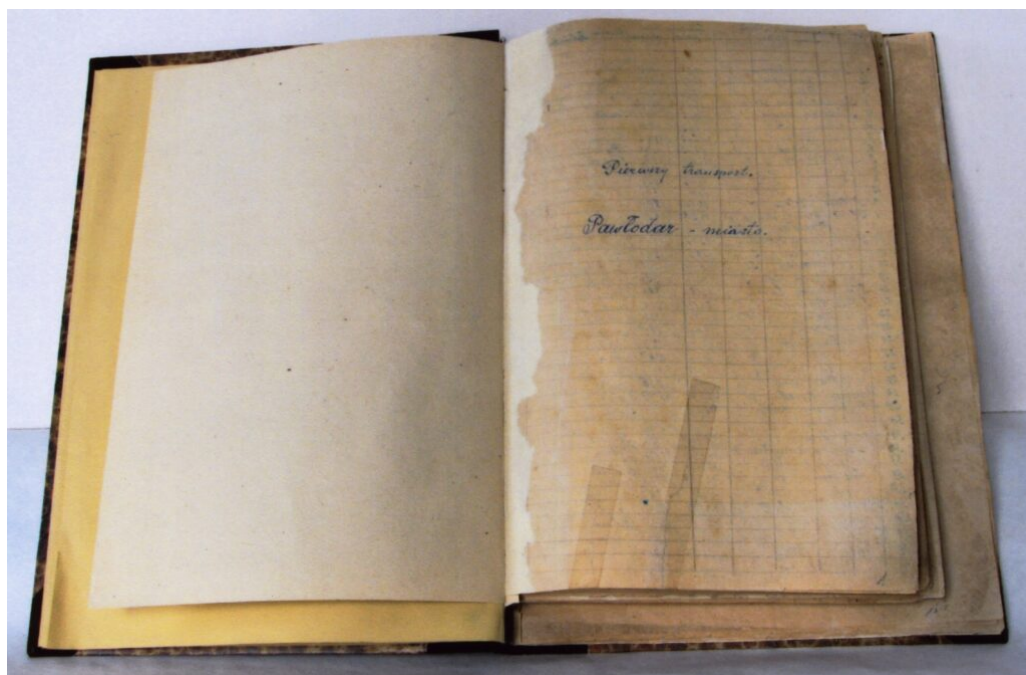 Pierwszy transport.
Pawłodar - miasto.